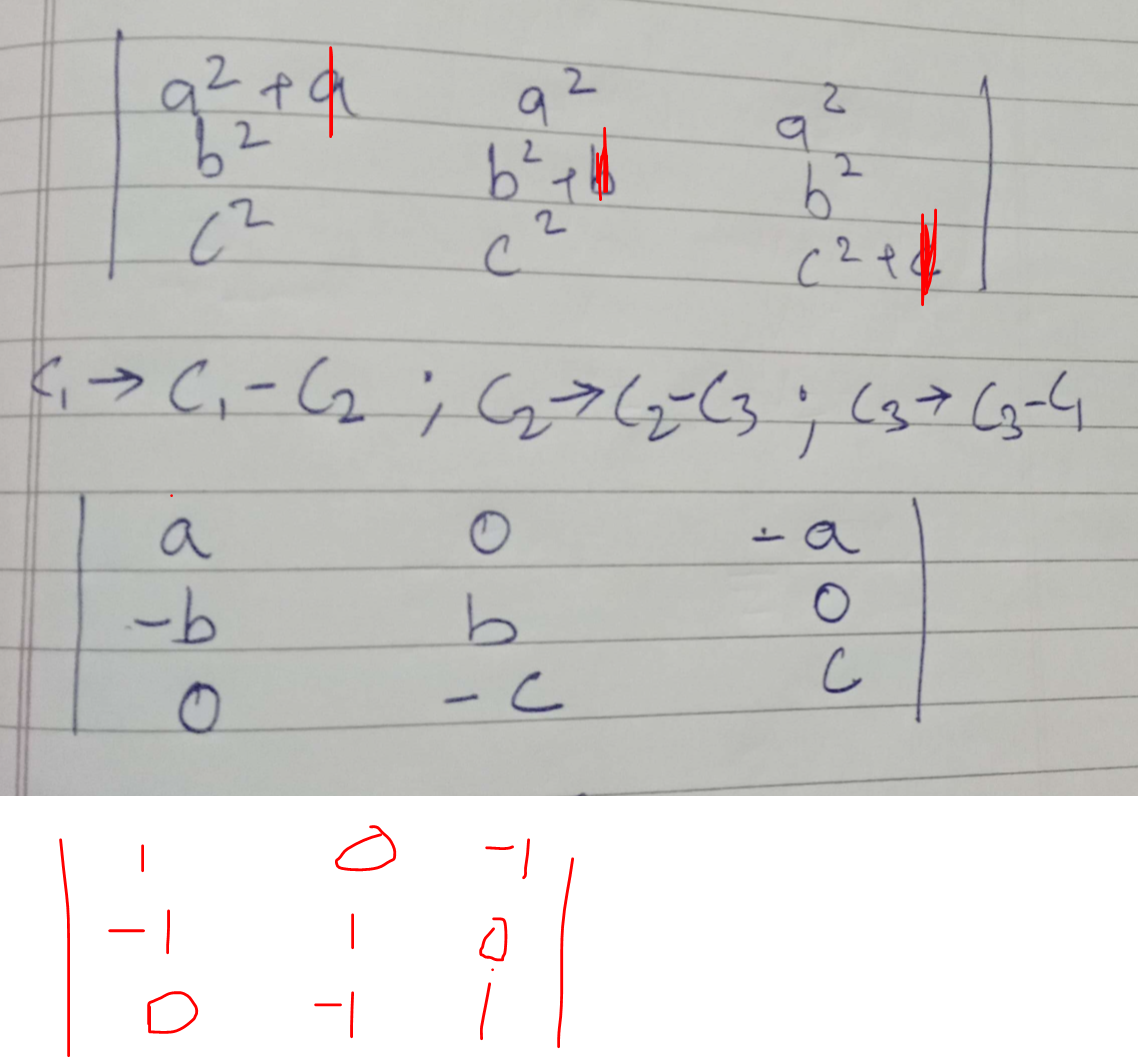 | a² + 1 a² a² |
| b² b² + 1 b² |
| c² c² c² + 1 |
C₁ → C₁ - C₂ ; C₂ → C₂ - C₃ ; C₃ → C₃ - C₁
| a 0 - a |
| -b b 0 |
| 0 - c c |
| 1 0 -1 |
| -1 1 0 |
| 0 -1 1 |